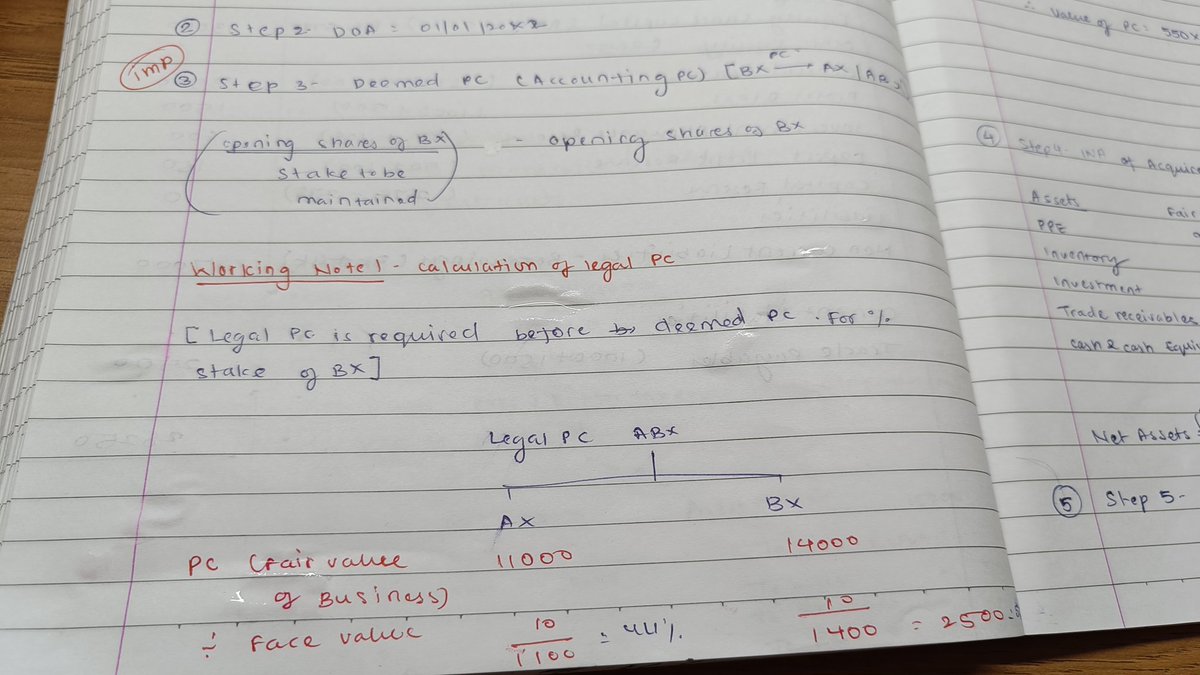 ② Step 2- DOA = 01/01/20x2
imp
③ Step 3- Deemed PC (Accounting PC) [BX PC → AX | AB
(opening shares of BX) - opening shares of BX
stake to be
maintained
Working Note 1 - calculation of legal PC
[Legal PC is required before deemed PC. For %
stake of BX]
Legal PC ABX
AX BX
PC (Fair value 11000 14000
of Business)
÷ Face value 10 10
1100 = 44% 1400 = 2500
∴ Value of PC: 550x
④ Step 4- INA of Acquire
Assets Fair
PPE
Inventory
Investment
Trade receivables
cash & cash Equiv
Net Assets
⑤ Step 5-